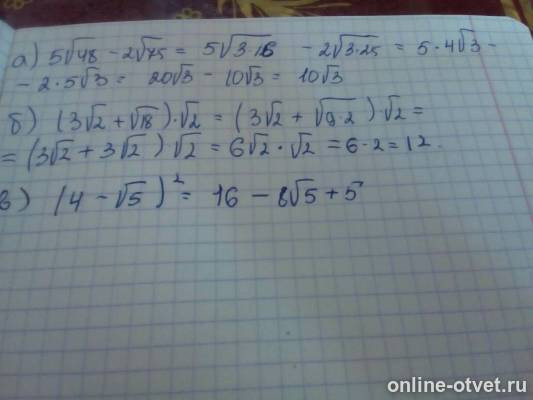 а) 5√48 - 2√75 = 5√3·16 - 2√3·25 = 5·4√3 -
- 2·5√3 = 20√3 - 10√3 = 10√3
б) (3√2 + √18)·√2 = (3√2 + √9·2)·√2 =
= (3√2 + 3√2)√2 = 6√2·√2 = 6·2 = 12.
в) (4 - √5)² = 16 - 8√5 + 5
online-otvet.ru